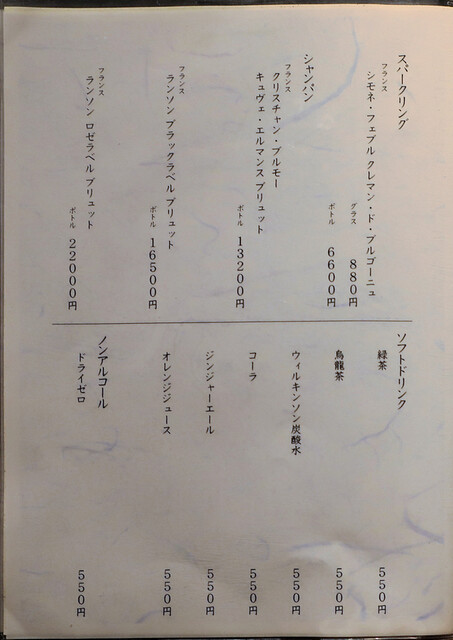 スパークリング
フランス
シモネ・フェブル クレマン・ド・ブルゴーニュ
グラス 880円
ボトル 6600円
シャンパン
フランス
クリスチャン・ブルモー
キュヴェ・エルマンス ブリュット
ボトル 13200円
フランス
ランソン ブラックラベル ブリュット
ボトル 16500円
フランス
ランソン ロゼラベル ブリュット
ボトル 22000円
ソフトドリンク
緑茶 550円
烏龍茶 550円
ウィルキンソン炭酸水 550円
コーラ 550円
ジンジャーエール 550円
オレンジジュース 550円
ノンアルコール
ドライゼロ 550円